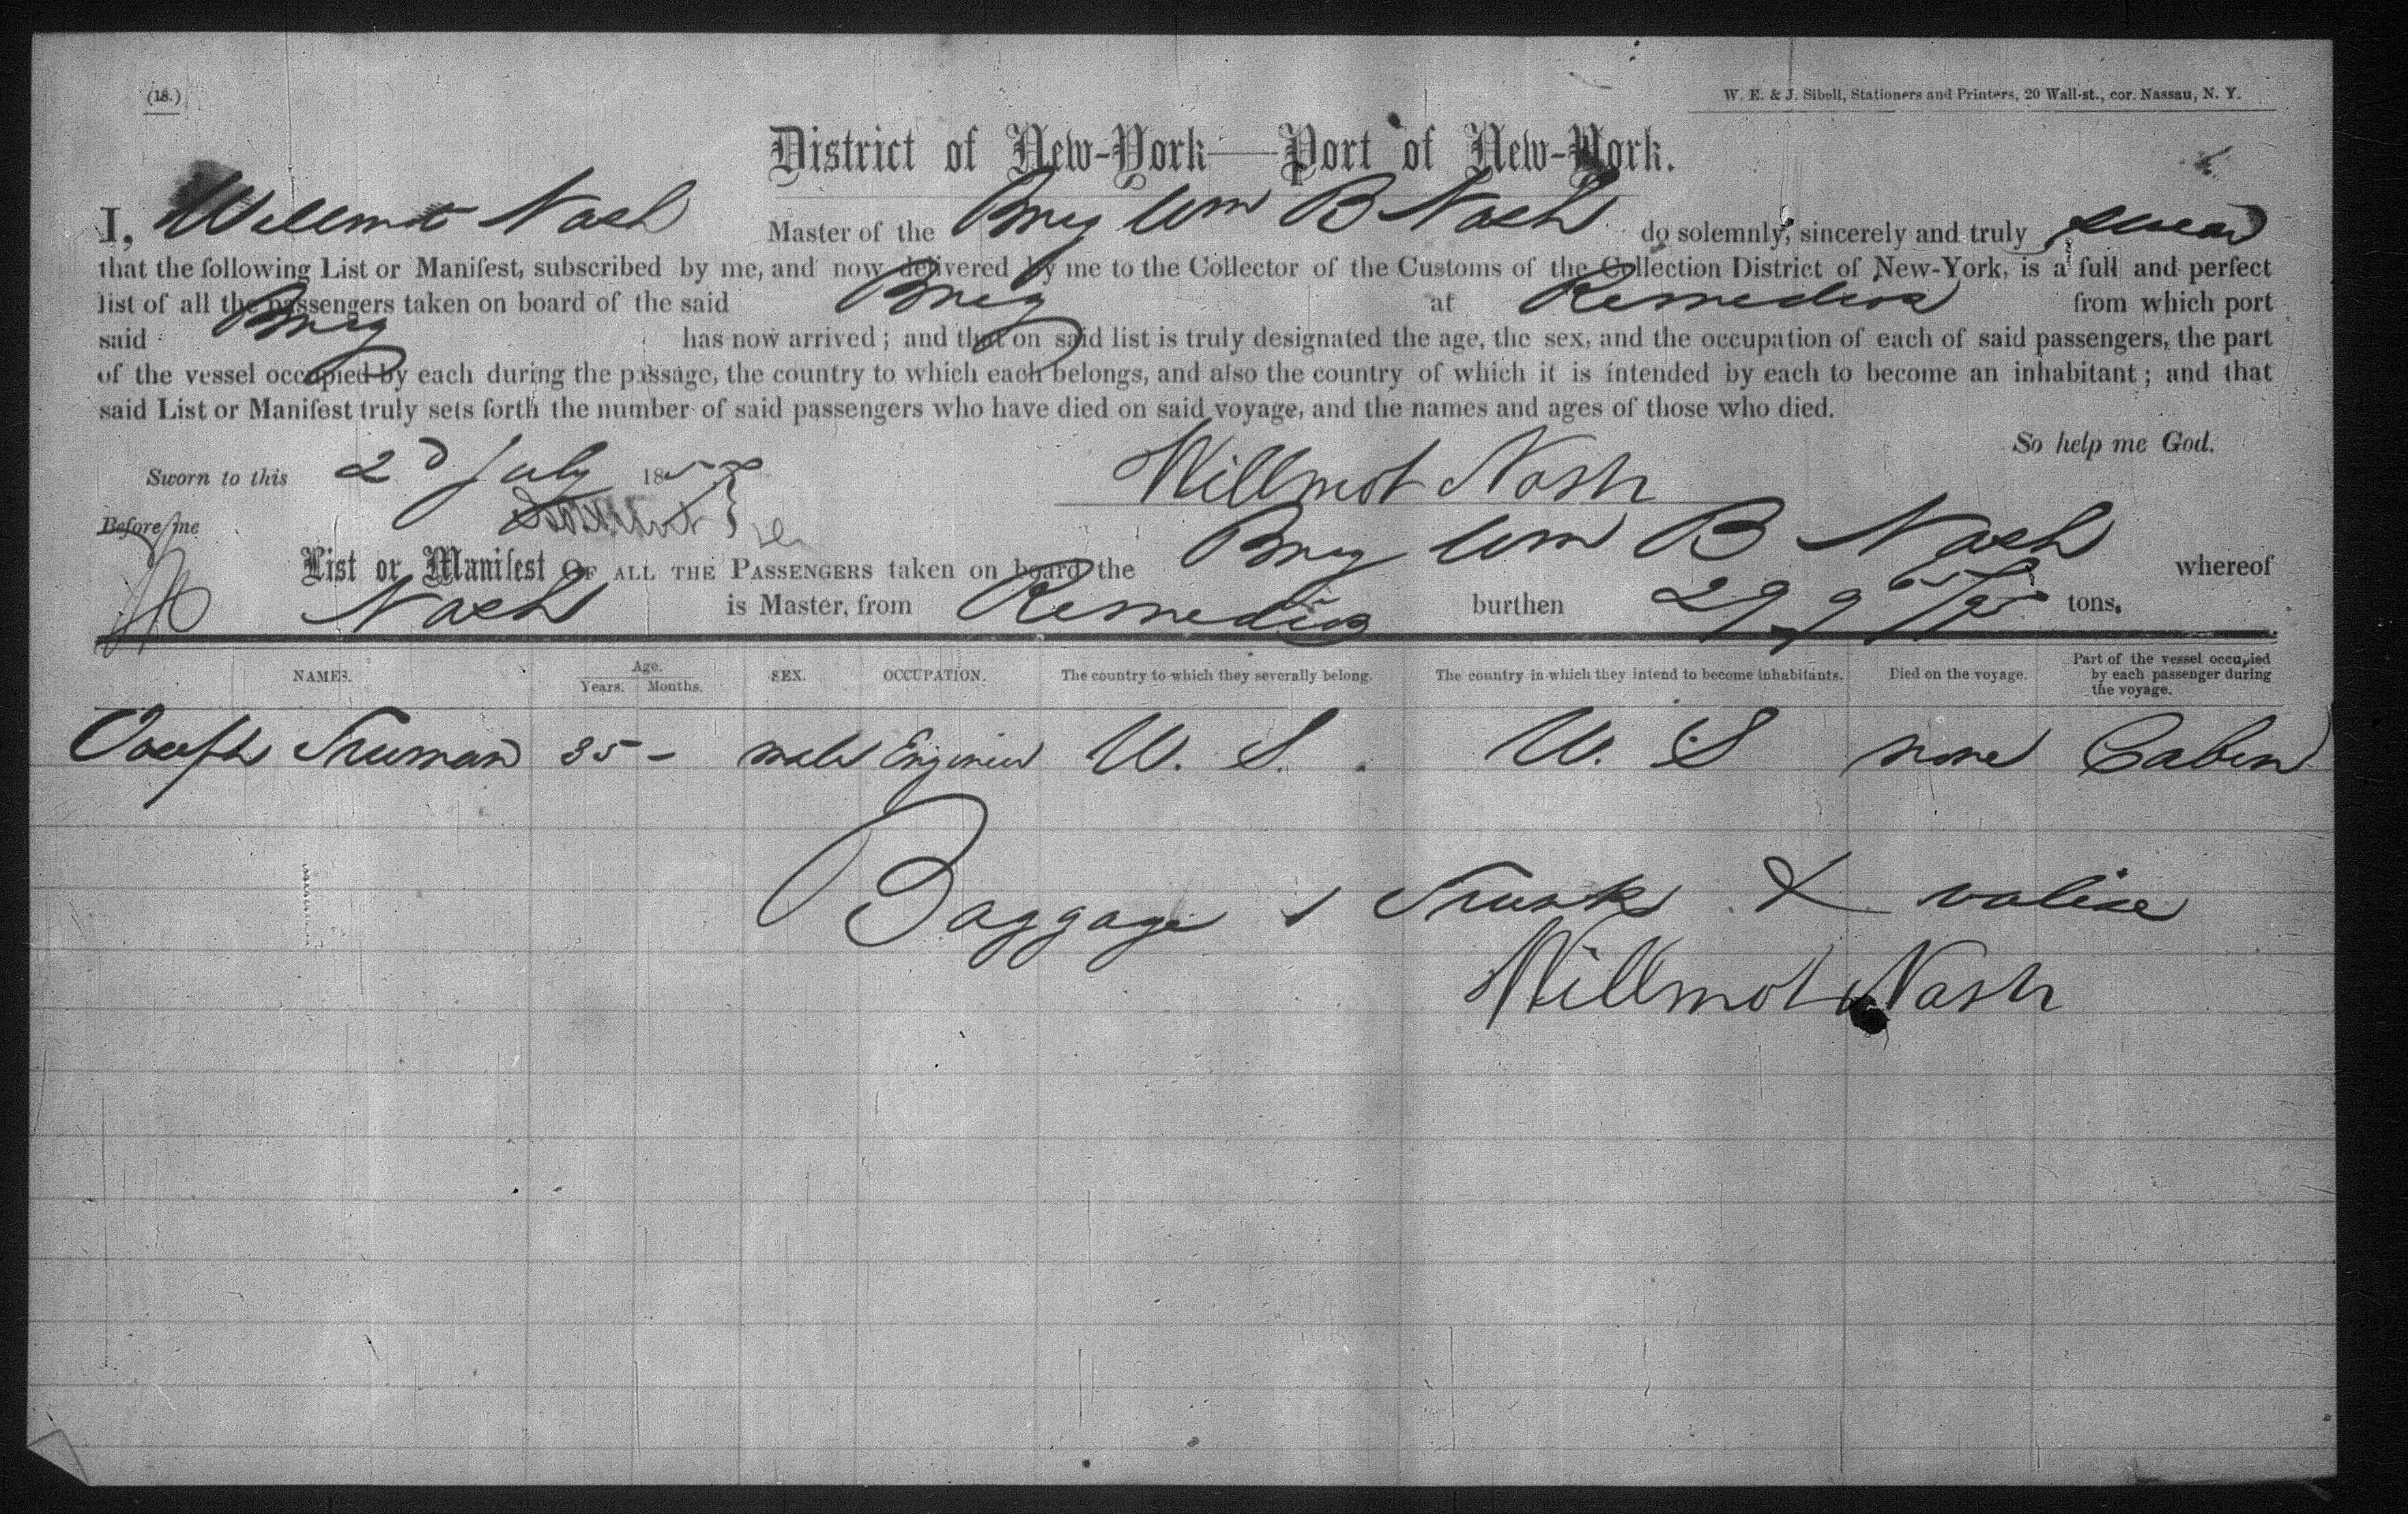 (18.)
W. E. & J. Sibell, Stationers and Printers, 20 Wall-st., cor. Nassau, N. Y.
District of New-York—Port of New-York.
I, Willmot Nash Master of the Brig Wm B Nash do solemnly, sincerely and truly swear
that the following List or Manifest, subscribed by me, and now delivered by me to the Collector of the Customs of the Collection District of New-York, is a full and perfect
list of all the passengers taken on board of the said Brig at Remedios from which port
said Brig has now arrived; and that on said list is truly designated the age, the sex, and the occupation of each of said passengers, the part
of the vessel occupied by each during the passage, the country to which each belongs, and also the country of which it is intended by each to become an inhabitant; and that
said List or Manifest truly sets forth the number of said passengers who have died on said voyage, and the names and ages of those who died.
So help me God.
Sworn to this 2d July 185
Willmot Nash
Before me
List or Manifest OF ALL THE PASSENGERS taken on board the Brig Wm B Nash whereof
Nash is Master, from Remedios burthen 299 /95 tons.
NAMES. Age. Years. Months. SEX. OCCUPATION. The country to which they severally belong. The country in which they intend to become inhabitants. Died on the voyage. Part of the vessel occupied by each passenger during the voyage.
Joseph Truman 35 - male Engineer U. S. U. S none Cabin
Baggage 1 Trunk & valise
Willmot Nash